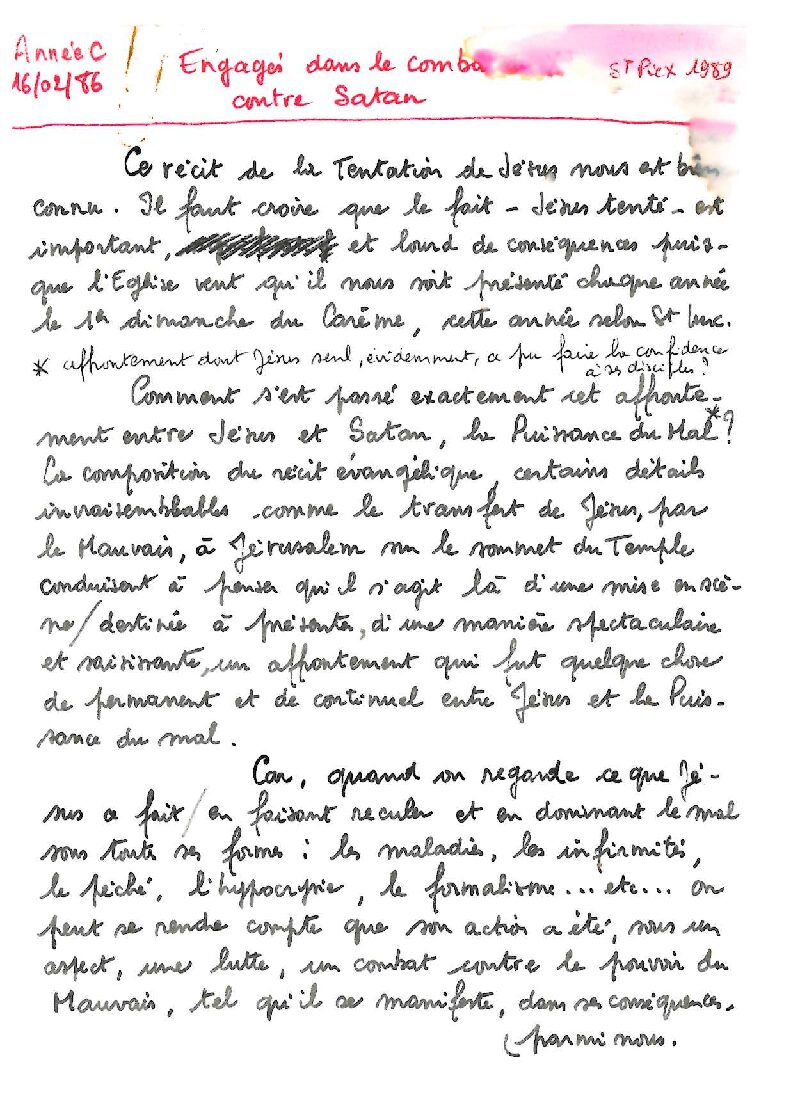 Année C
16/02/86
Engagés dans le comba
contre Satan
St Piex 1989
Ce récit de la Tentation de Jésus nous est bien
connu. Il faut croire que le fait - Jésus tenté - est
important, et lourd de conséquences puis-
que l'Eglise veut qu'il nous soit présenté chaque année
le 1er dimanche du Carême, cette année selon St Luc.
* affrontement dont Jésus seul, évidemment, a pu faire la confidence
à ses disciples?
Comment s'est passé exactement cet affronte-
ment entre Jésus et Satan, la Puissance du Mal*?
La composition du récit évangélique, certains détails
invraisemblables comme le transfert de Jésus, par
le Mauvais, à Jérusalem sur le sommet du Temple
conduisent à penser qu'il s'agit là d'une mise en scè-
ne/destinée à présenter, d'une manière spectaculaire
et saisissante, un affrontement qui fut quelque chose
de permanent et de continuel entre Jésus et la Puis-
sance du mal.
Car, quand on regarde ce que Jé-
sus a fait/en faisant reculer et en dominant le mal
sous toutes ses formes : les maladies, les infirmités,
le péché, l'hypocrisie, le formalisme... etc... on
peut se rendre compte que son action a été, sous un
aspect, une lutte, un combat contre le pouvoir du
Mauvais, tel qu'il se manifeste, dans ses conséquences,
parmi nous.